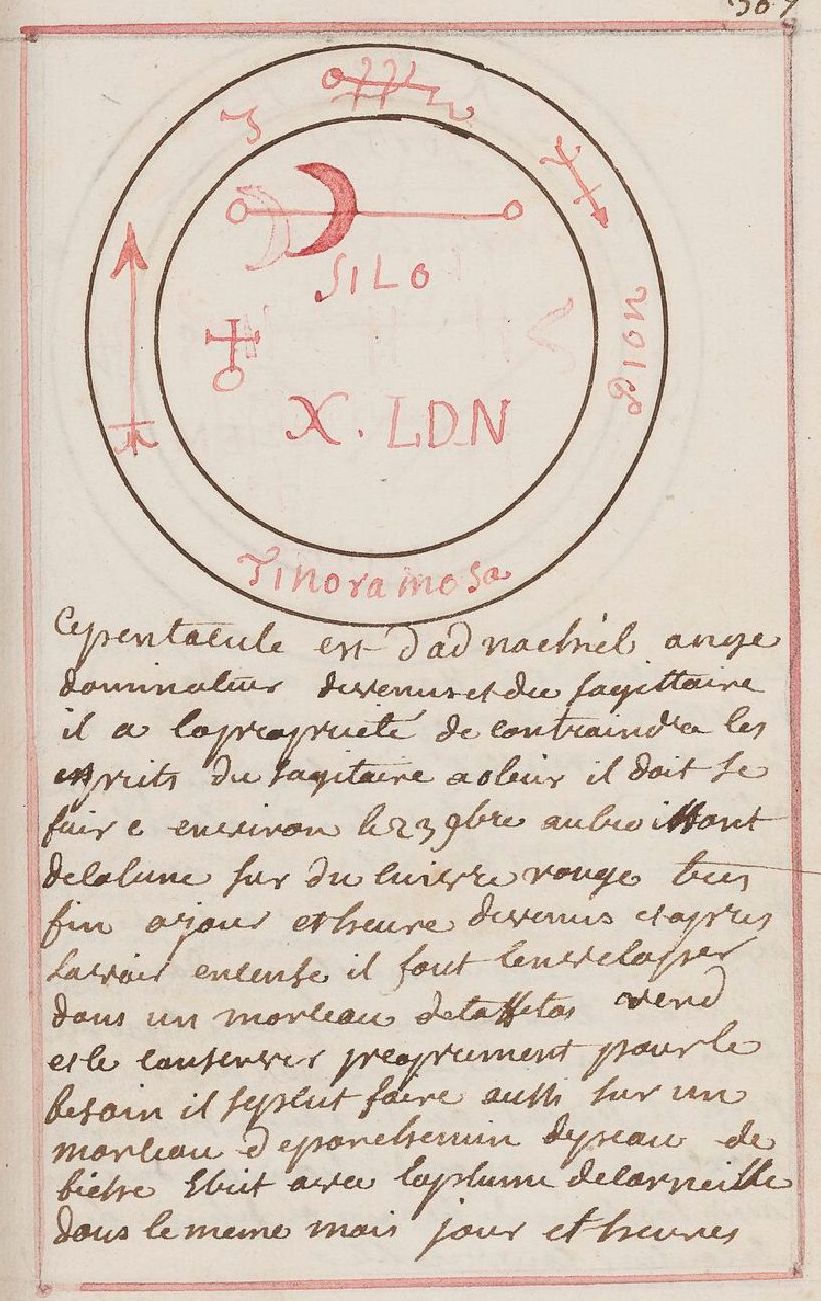 SILO
X. LDN
NOIS
Tinoramosa
Cepentacule est dadnachiel ange
dominateur devenus et du sagittaire
il a lapropriété de contraindre les
esprits du sagitaire il doit se
faire environ le 23 9bre au croissant
delalune sur du cuivre rouge tres
fin ajour et heure devenus et apres
lavoir encense il faut lenveloper
dans un morceau detaffetas verd
et le conserver proprement pour le
besoin il sepeut faire aussi sur un
morceau deparchemin depeau de
biche Ecrit avec laplume decorneille
dans le meme mois jour et heures